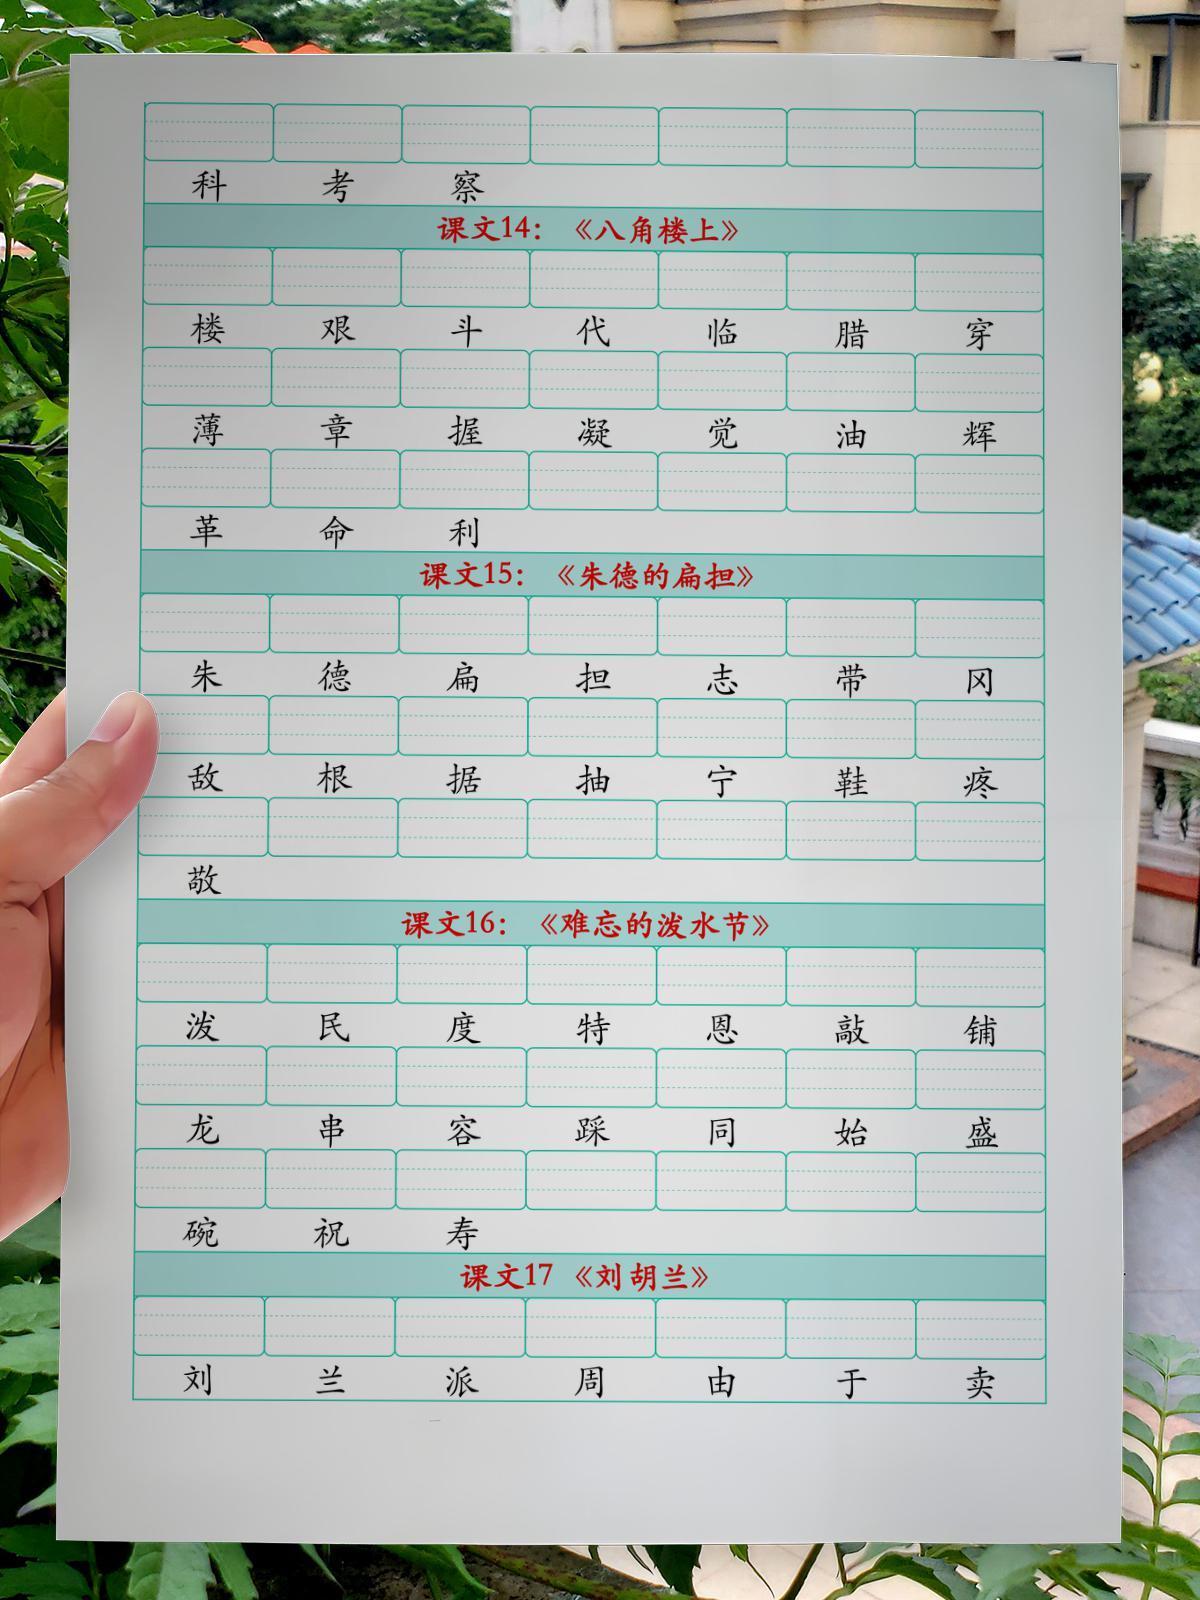 科 考 察
课文14：《八角楼上》
楼 艰 斗 代 临 腊 穿
薄 章 握 凝 觉 油 辉
革 命 利
课文15：《朱德的扁担》
朱 德 扁 担 志 带 冈
敌 根 据 抽 宁 鞋 疼
敬
课文16：《难忘的泼水节》
泼 民 度 特 恩 敲 铺
龙 串 容 踩 同 始 盛
碗 祝 寿
课文17 《刘胡兰》
刘 兰 派 周 由 于 卖